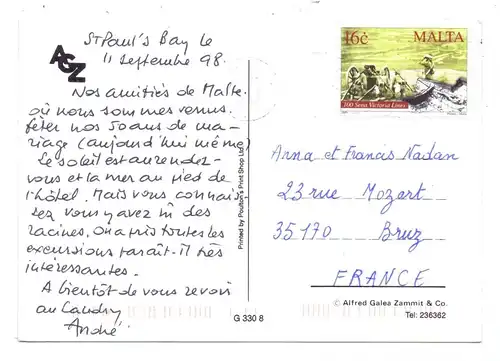 St Paul's Bay le
11 septembre 98.
AGZ
Nos amitiés de Malte.
où nous sommes venus
fêter nos 50 ans de ma-
riage (aujourd'hui même)
Le soleil est au rendez-
vous et la mer au pied de
l'hôtel. Mais vous connais-
sez vous y avez des
racines. On a pris toutes les
excursions paraît-il très
intéressantes.
A bientôt de vous revoir
au
André.
Printed by Poulton's Print Shop Ltd.
G 330 8
16c MALTA
100 Sena Victoria Lines
Anna et Francis Nadan
23 rue Mozart
35170 Bruz
FRANCE
© Alfred Galea Zammit & Co.
Tel: 236362